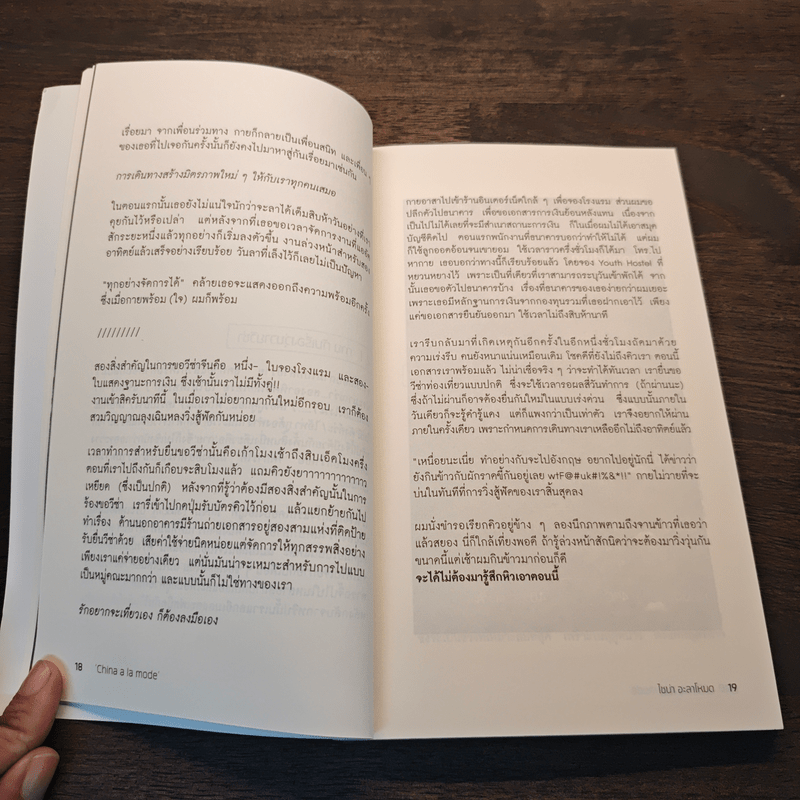 เรื่อยมา จากเพื่อนร่วมทาง กายก็กลายเป็นเพื่อนสนิท และเพื่อน ๆ
ของเธอที่ไปเจอกันครั้งนั้นก็ยังคงไปมาหาสู่กันเรื่อยมาเช่นกัน
การเดินทางสร้างมิตรภาพใหม่ ๆ ให้กับเราทุกคนเสมอ
ในตอนแรกนั้นเธอยังไม่แน่ใจนักว่าจะลาได้เต็มสิบห้าวันอย่างที่เรา
คุยกันไว้หรือเปล่า แต่หลังจากที่เธอขอเวลาจัดการงานที่แอลิต
สักระยะหนึ่งแล้วทุกอย่างก็เริ่มลงตัวขึ้น งานล่วงหน้าสำหรับสอง
อาทิตย์แล้วเสร็จอย่างเรียบร้อย วันลาที่เล็งไว้ก็เลยไม่เป็นปัญหา
"ทุกอย่างจัดการได้" คล้ายเธอจะแสดงออกถึงความพร้อมอีกครั้ง
ซึ่งเมื่อกายพร้อม (ใจ) ผมก็พร้อม
/////////
สองสิ่งสำคัญในการขอวีซ่าจีนคือ หนึ่ง- ใบจองโรงแรม และสอง-
ใบแสดงฐานะการเงิน ซึ่งเช้านั้นเราไม่มีทั้งคู่!!
งานเข้าสิครับนาทีนี้ ในเมื่อเราไม่อยากมากันใหม่อีกรอบ เราก็ต้อง
สวมวิญญาณลุงเฉินหลงวิ่งสู้ฟัดกันหน่อย
เวลาทำการสำหรับยื่นขอวีซ่านั้นคือเก้าโมงเช้าถึงสิบเอ็ดโมงครึ่ง
ตอนที่เราไปถึงกันก็เกือบจะสิบโมงแล้ว แถมคิวยังยาาาาาาาาาาว
เหยียด (ซึ่งเป็นปกติ) หลังจากที่รู้ว่าต้องมีสองสิ่งสำคัญนั้นในการ
ร้องขอวีซ่า เรารี่เข้าไปกดปุ่มรับบัตรคิวไว้ก่อน แล้วแยกย้ายกันไป
ทำเรื่อง ด้านนอกอาคารมีร้านถ่ายเอกสารอยู่สองสามแห่งที่ติดป้าย
รับยื่นวีซ่าด้วย เสียค่าใช้จ่ายนิดหน่อยแต่จัดการให้ทุกสรรพสิ่งอย่าง
เพียงเราแค่จ่ายอย่างเดียว แต่นั่นมันน่าจะเหมาะสำหรับการไปแบบ
เป็นหมู่คณะมากกว่า และแบบนั้นก็ไม่ใช่ทางของเรา
รักอยากจะเที่ยวเอง ก็ต้องลงมือเอง
18 'China a la mode'
กายอาสาไปเข้าร้านอินเตอร์เน็ตใกล้ ๆ เพื่อจองโรงแรม ส่วนผมขอ
ปลีกตัวไปธนาคาร เพื่อขอเอกสารการเงินย้อนหลังแทน เนื่องจาก
เป็นไปไม่ได้เลยที่จะมีสำเนาสถานะการเงิน ก็ในเมื่อผมไม่ได้เอาสมุด
บัญชีติดไป ตอนแรกพนักงานที่ธนาคารบอกว่าทำให้ไม่ได้ แต่ผม
ก็ใช้ลูกออดอ้อนจนเขายอม ใช้เวลาราวครึ่งชั่วโมงก็ได้มา โทร.ไป
หากาย เธอบอกว่าทางนี้ก็เรียบร้อยแล้ว โดยจอง Youth Hostel ที่
หยวนหยางไว้ เพราะเป็นที่เดียวที่เราสามารถระบุวันเข้าพักได้ จาก
นั้นเธอขอตัวไปธนาคารบ้าง เรื่องที่ธนาคารของเธอง่ายกว่าผมเยอะ
เพราะเธอมีหลักฐานการเงินจากกองทุนรวมที่เธอฝากเอาไว้ เพียง
แค่ขอเอกสารยืนยันออกมา ใช้เวลาไม่ถึงสิบห้านาที
เรารีบกลับมาที่เกิดเหตุกันอีกครั้งในอีกหนึ่งชั่วโมงถัดมาด้วย
ความเร่งรีบ คนยังหนาแน่นเหมือนเดิม โชคดีที่ยังไม่ถึงคิวเรา ตอนนี้
เอกสารเราพร้อมแล้ว ไม่น่าเชื่อจริง ๆ ว่าจะทำได้ทันเวลา เรายื่นขอ
วีซ่าท่องเที่ยวแบบปกติ ซึ่งจะใช้เวลารอผลสี่วันทำการ (ถ้าผ่านนะ)
ซึ่งถ้าไม่ผ่านก็อาจต้องยื่นกันใหม่ในแบบเร่งด่วน ซึ่งแบบนั้นภายใน
วันเดียวก็จะรู้ดำรู้แดง แต่ก็แพงกว่าเป็นเท่าตัว เราจึงอยากให้ผ่าน
ภายในครั้งเดียว เพราะกำหนดการเดินทางเราเหลืออีกไม่ถึงอาทิตย์แล้ว
"เหนื่อยนะเนี่ย ทำอย่างกับจะไปอังกฤษ อยากไปอยู่นักนี่ ได้ข่าวว่า
ยังกินข้าวกับผักราดขี้กันอยู่เลย wtF@#uk#!%&*!!" กายไม่วายที่จะ
บ่นในทันทีที่การวิ่งสู้ฟัดของเราสิ้นสุดลง
ผมนั่งขำรอเรียกคิวอยู่ข้าง ๆ ลองนึกภาพตามถึงจานข้าวที่เธอว่า
แล้วสยอง นี่ก็ใกล้เที่ยงพอดี ถ้ารู้ล่วงหน้าสักนิดว่าจะต้องมาวิ่งวุ่นกัน
ขนาดนี้แต่เช้าผมกินข้าวมาก่อนก็ดี
จะได้ไม่ต้องมารู้สึกหิวเอาตอนนี้
ไชน่า อะลาโหมด 19